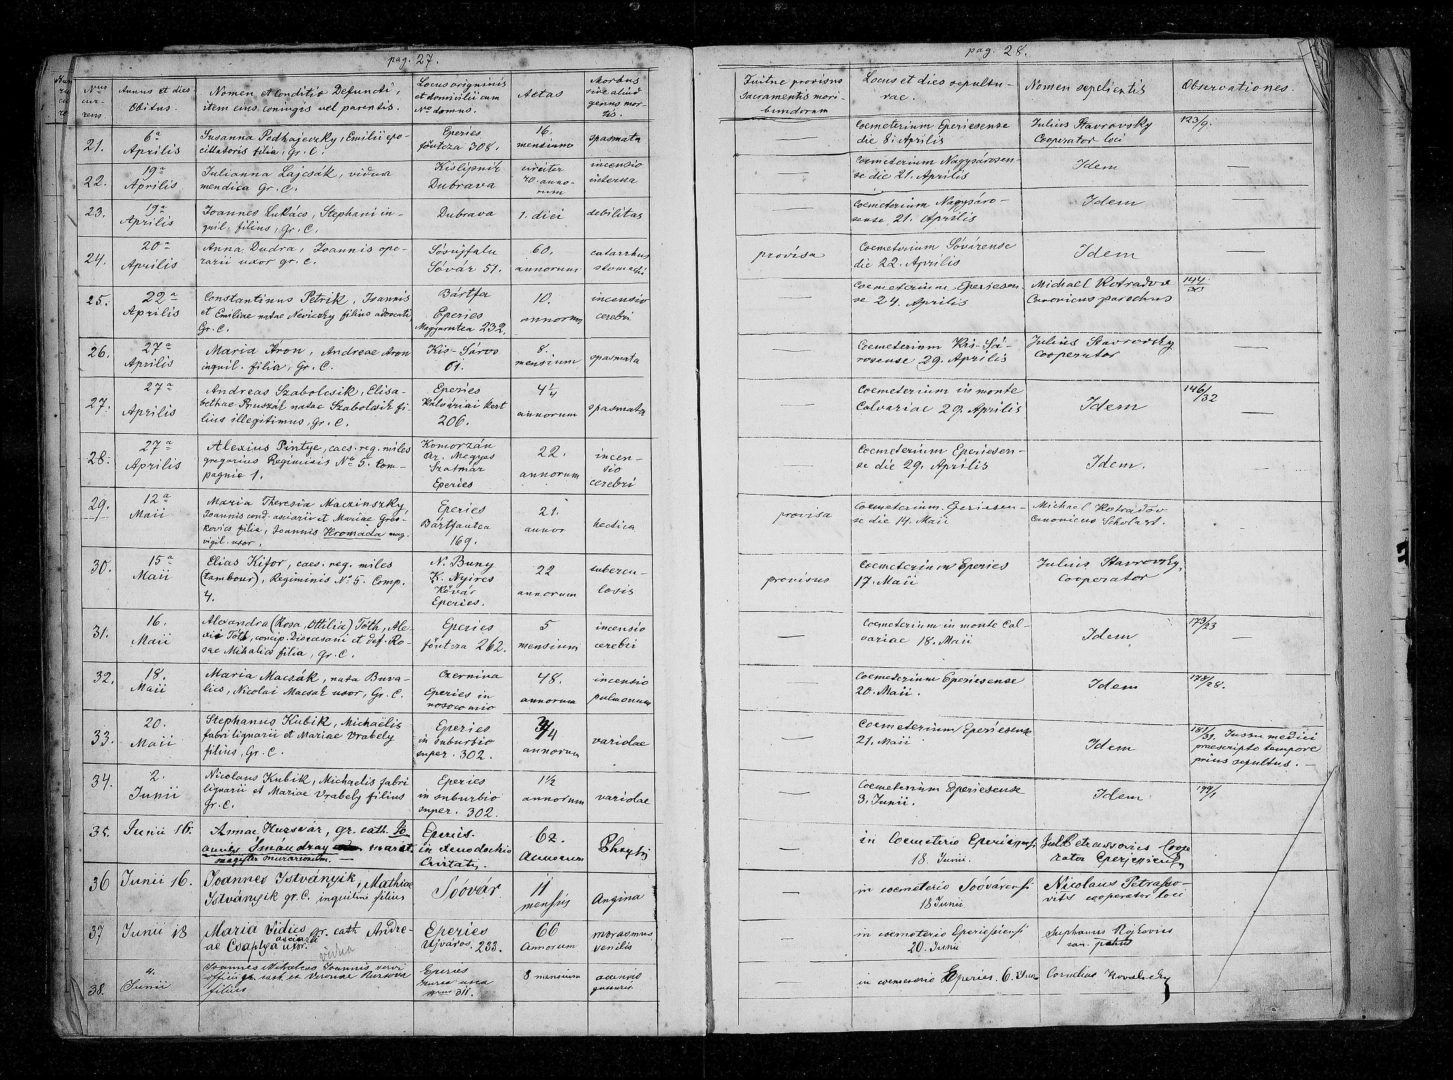 pag. 27.
Nrus cur-rens
Annus et dies obitus.
Nomen et conditio Defuncti, item eius coniugis vel parentis.
Locus originis et domicilii cum Nro domus.
Aetas
Morbus sive aliud genus mortis.
21.
6a Aprilis
Susanna Podhajeczky, Emilii epo-
cillatoris filia, Gr. C.
Eperies
főutcza 308.
16.
mensium
spasmata
22.
19a Aprilis
Julianna Lajcsák, vidua
mendica Gr. C.
Kislipnik
Dubrava
circiter
70. anno-
rum
incensio
interna
23.
19a Aprilis
Joannes Lukács, Stephani in-
quil. filius, Gr. C.
Dubrava
1. diei
debilitas
24.
20a Aprilis
Anna Dudra, Joannis ope-
rarii uxor gr. C.
Sósújfalu
Sóvár 51.
60.
annorum
catarrhus
stomachi
25.
22a Aprilis
Constantinus Petrik, Joannis
et Emiliae natae Neviczky filius advocati
Gr. C.
Bártfa
Eperies
Magyarutca 232.
10.
annorum
incensio
cerebri
26.
27a Aprilis
Maria Aron, Andreae Aron
inquil. filia, Gr. C.
Kis-Sáros
61.
8.
mensium
spasmata
27.
27a
Aprilis
Andreas Szabolcsik, Elisa-
bethae Pruszák natae Szabolcsik fi-
lius illegitimus, Gr. C.
Eperies
Kálváriai kert
206.
4 1/4
annorum
spasmata
28.
27a
Aprilis
Alexius Pintye, caes. reg. miles
gregarius Regiminis No 5. Com-
pagnie 1.
Komorzán
Megyas
Szatmár
Eperies
22.
annorum
incen-
sio
cerebri
29.
12a
Maii
Maria Theresia Maczinszky,
filia, Joannis Hromada
vigil. uxor.
Eperies
Bártfautca
169.
21.
annor
hectica
30.
15a
Maii
Elias Kifor, caes. reg. miles
(tambour), Regiminis No 5. Comp.
4.
N. Buny
K. Nyires
Kővár
Eperies.
22
annorum
tubercu-
losis
31.
16.
Maii
Alexandra (Rosa, Ottilia) Tóth, Ale-
xii Tóth, concip. Dioecesani et def. Ro-
sae Mihalics filia, Gr. C.
Eperies
főutcza 262.
5
mensium
incensio
cerebri
32.
18.
Maii
Maria Macsák, nata Buva-
lics, Nicolai Macsák uxor, Gr. C.
Czernina
Eperies in
nosocomio
48.
annorum
incensio
pulmonum
33.
20.
Maii
Stephanus Kubik, Michaëlis
fabri lignarii et Mariae Vrabely
filius, Gr. C.
Eperies
in suburbio
super. 302.
3/4
annorum
variolae
34.
2.
Junii
Nicolaus Kubik, Michaelis fabri
lignarii et Mariae Vrabely filius
Gr. C.
Eperies
in suburbio
super. 302.
1 1/2
annorum
variolae
35.
Junii 16.
Annae Kurzvár, gr. cath. Jo
annes Smándray marit.
magister murariorum.
Eperies.
in Xenodochio
Civitatis
62.
Annorum
Phtysis
36
Junii 16.
Joannes Istványik, Mathiae
Istványik gr. C. inquilini filius
Soóvár
11
mensis
Angina
37
Junii 18
Maria Vidics gr. cath. Andre-
ae Csaplja asciarii uxor.
vidua
Eperies
Ujváros. 233.
66
Annorum
marasmus
senilis
38.
4.
Junii
Joannes Mihalcsó Joannis
filius
Eperies
311.
8 mensium
pag. 28.
Fuitne provisus Sacramentis mori-bundorum
Locus et dies sepultu-rae.
Nomen sepelientis
Observationes.
—
Coemeterium Eperiesense
die 8. Aprilis
Julius Stavrovsky
Cooperator loci
123/9.
—
Coemeterium Nagysárosen-
se die 21. Aprilis
Idem
—
—
Coemeterium Nagysáro-
sense 21. Aprilis
Idem
—
provisa
Coemeterium Sóvárense
die 22. Aprilis
Idem
—
—
Coemeterium Eperiesen-
se 24. Aprilis
Michael Kotradov
Canonicus parochus
144/30
—
Coemeterium Kis-Sá-
rosense 29. Aprilis
Julius Stavrovsky
Cooperator
—
—
Coemeterium in monte
Calvariae 29. Aprilis
Idem
146/32
—
—
Coemeterium Eperiesen-
se die 29. Aprilis
Idem.
—
provisa
Coemeterium Eperiesen-
se die 14. Maii
Michael Kotradov
Canonicus Scholast.
—
provisus
Coemeterium Eperies
17. Maii
Julius Stavrovsky,
Cooperator
—
—
Coemeterium in monte Cal-
variae 18. Maii
Idem
173/23
—
—
Coemeterium Eperiesense
20. Maii.
Idem
178/28.
—
Coemeterium Eperiesense
21. Maii
Idem
181/31. Jussu medici
praescripto tempore
prius sepultus. —
—
Coemeterium Eperiesense
3. Junii.
Idem
199/1
—
in Coemeterio Eperiessensi
18. Junii
Jul. Petrassovics Coope
rata Eperjessiensis
—
in coemeterio Soóvárensi
18 Junii
Nicolaus Petrasso-
vits cooperator loci
—
in coemeterio Eperiessiensi
20. Junii
Stephanus Rojkovics
—
in coemeterio Eperies. 6. Junii
Cornelius Kovaliczky